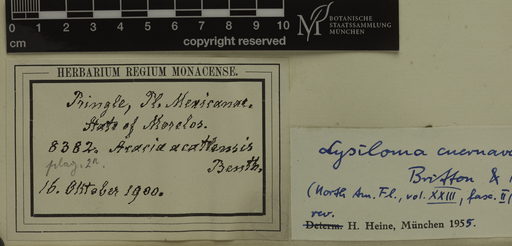 0 1 2 3 4 5 6 7 8 9 10
cm
copyright reserved
BOTANISCHE
STAATSSAMMLUNG
MÜNCHEN
HERBARIUM REGIUM MONACENSE.
Pringle, Pl. Mexicanae.
State of Morelos.
8382. Acacia acatlensis
Benth.
16. Oktober 1900.
Lysiloma cuernava
Britton &
(North Am. Fl., vol. XXIII, fasc. II
rev.
Determ. H. Heine, München 1955.